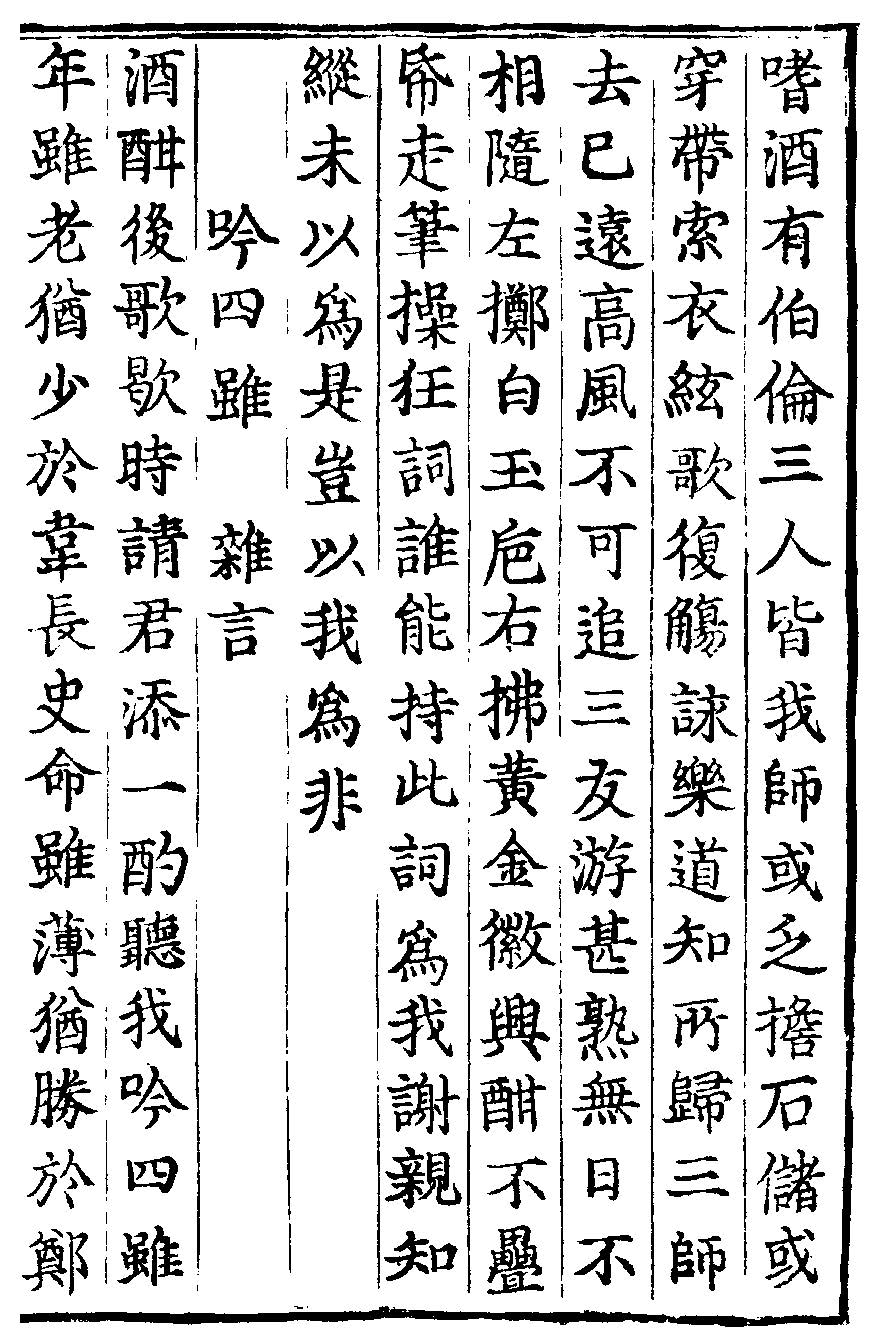 嗜酒有伯倫三人皆我師或乏擔石儲或
穿帶索衣絃歌復觴詠樂道知所歸三師
去已遠高風不可追三友游甚熟無日不
相隨左擲白玉巵右拂黃金徽興酣不疊
帋走筆操狂詞誰能持此詞爲我謝親知
縱未以爲是豈以我爲非
吟四雖　雜言
酒酣後歌歇時請君添一酌聽我吟四雖
年雖老猶少於韋長史命雖薄猶勝於鄭